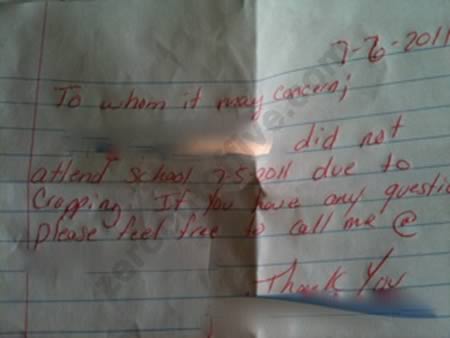 7-6-2011
To whom it may concern;
did not
attend school 7-5-2011 due to
Cropping. If you have any questio
please feel free to call me @
Thank You